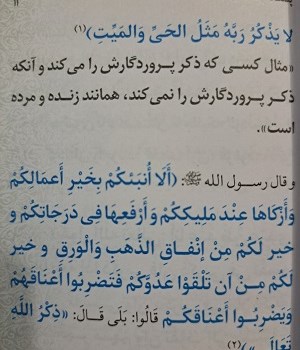 ۱۱
لا يَذْكُرُ رَبَّهُ مَثَلُ الحَيِّ وَالمَيِّتِ)(۱)
«مثال کسی که ذکر پروردگارش را می‌کند و آنکه
ذکر پروردگارش را نمی‌کند، همانند زنده و مرده
است».
و قال رسول الله ﷺ: (أَلَا أُنَبِّئُكُمْ بِخَيْرِ أَعمَالِكُمْ
وَأَزْكَاهَا عِنْدَ مَلِيكِكُمْ وَ أَرْفَعِهَا فِي دَرَجَاتِكُمْ و
خير لَكُمْ مِنْ إنْفاقِ الذَّهَبِ وَالْوَرِقِ و خير
لَكُمْ مِـنْ آن تَلْقَوْا عَدُوَّكُمْ فَتَضْرِبُوا أَعْنَاقَهُمْ
وَيَضْرِبُوا أَعْنَاقَكُـمْ قَالُوا: بَلَى قَالَ: «ذِكْرُ اللَّهِ
تَعَالَى»)(۲)